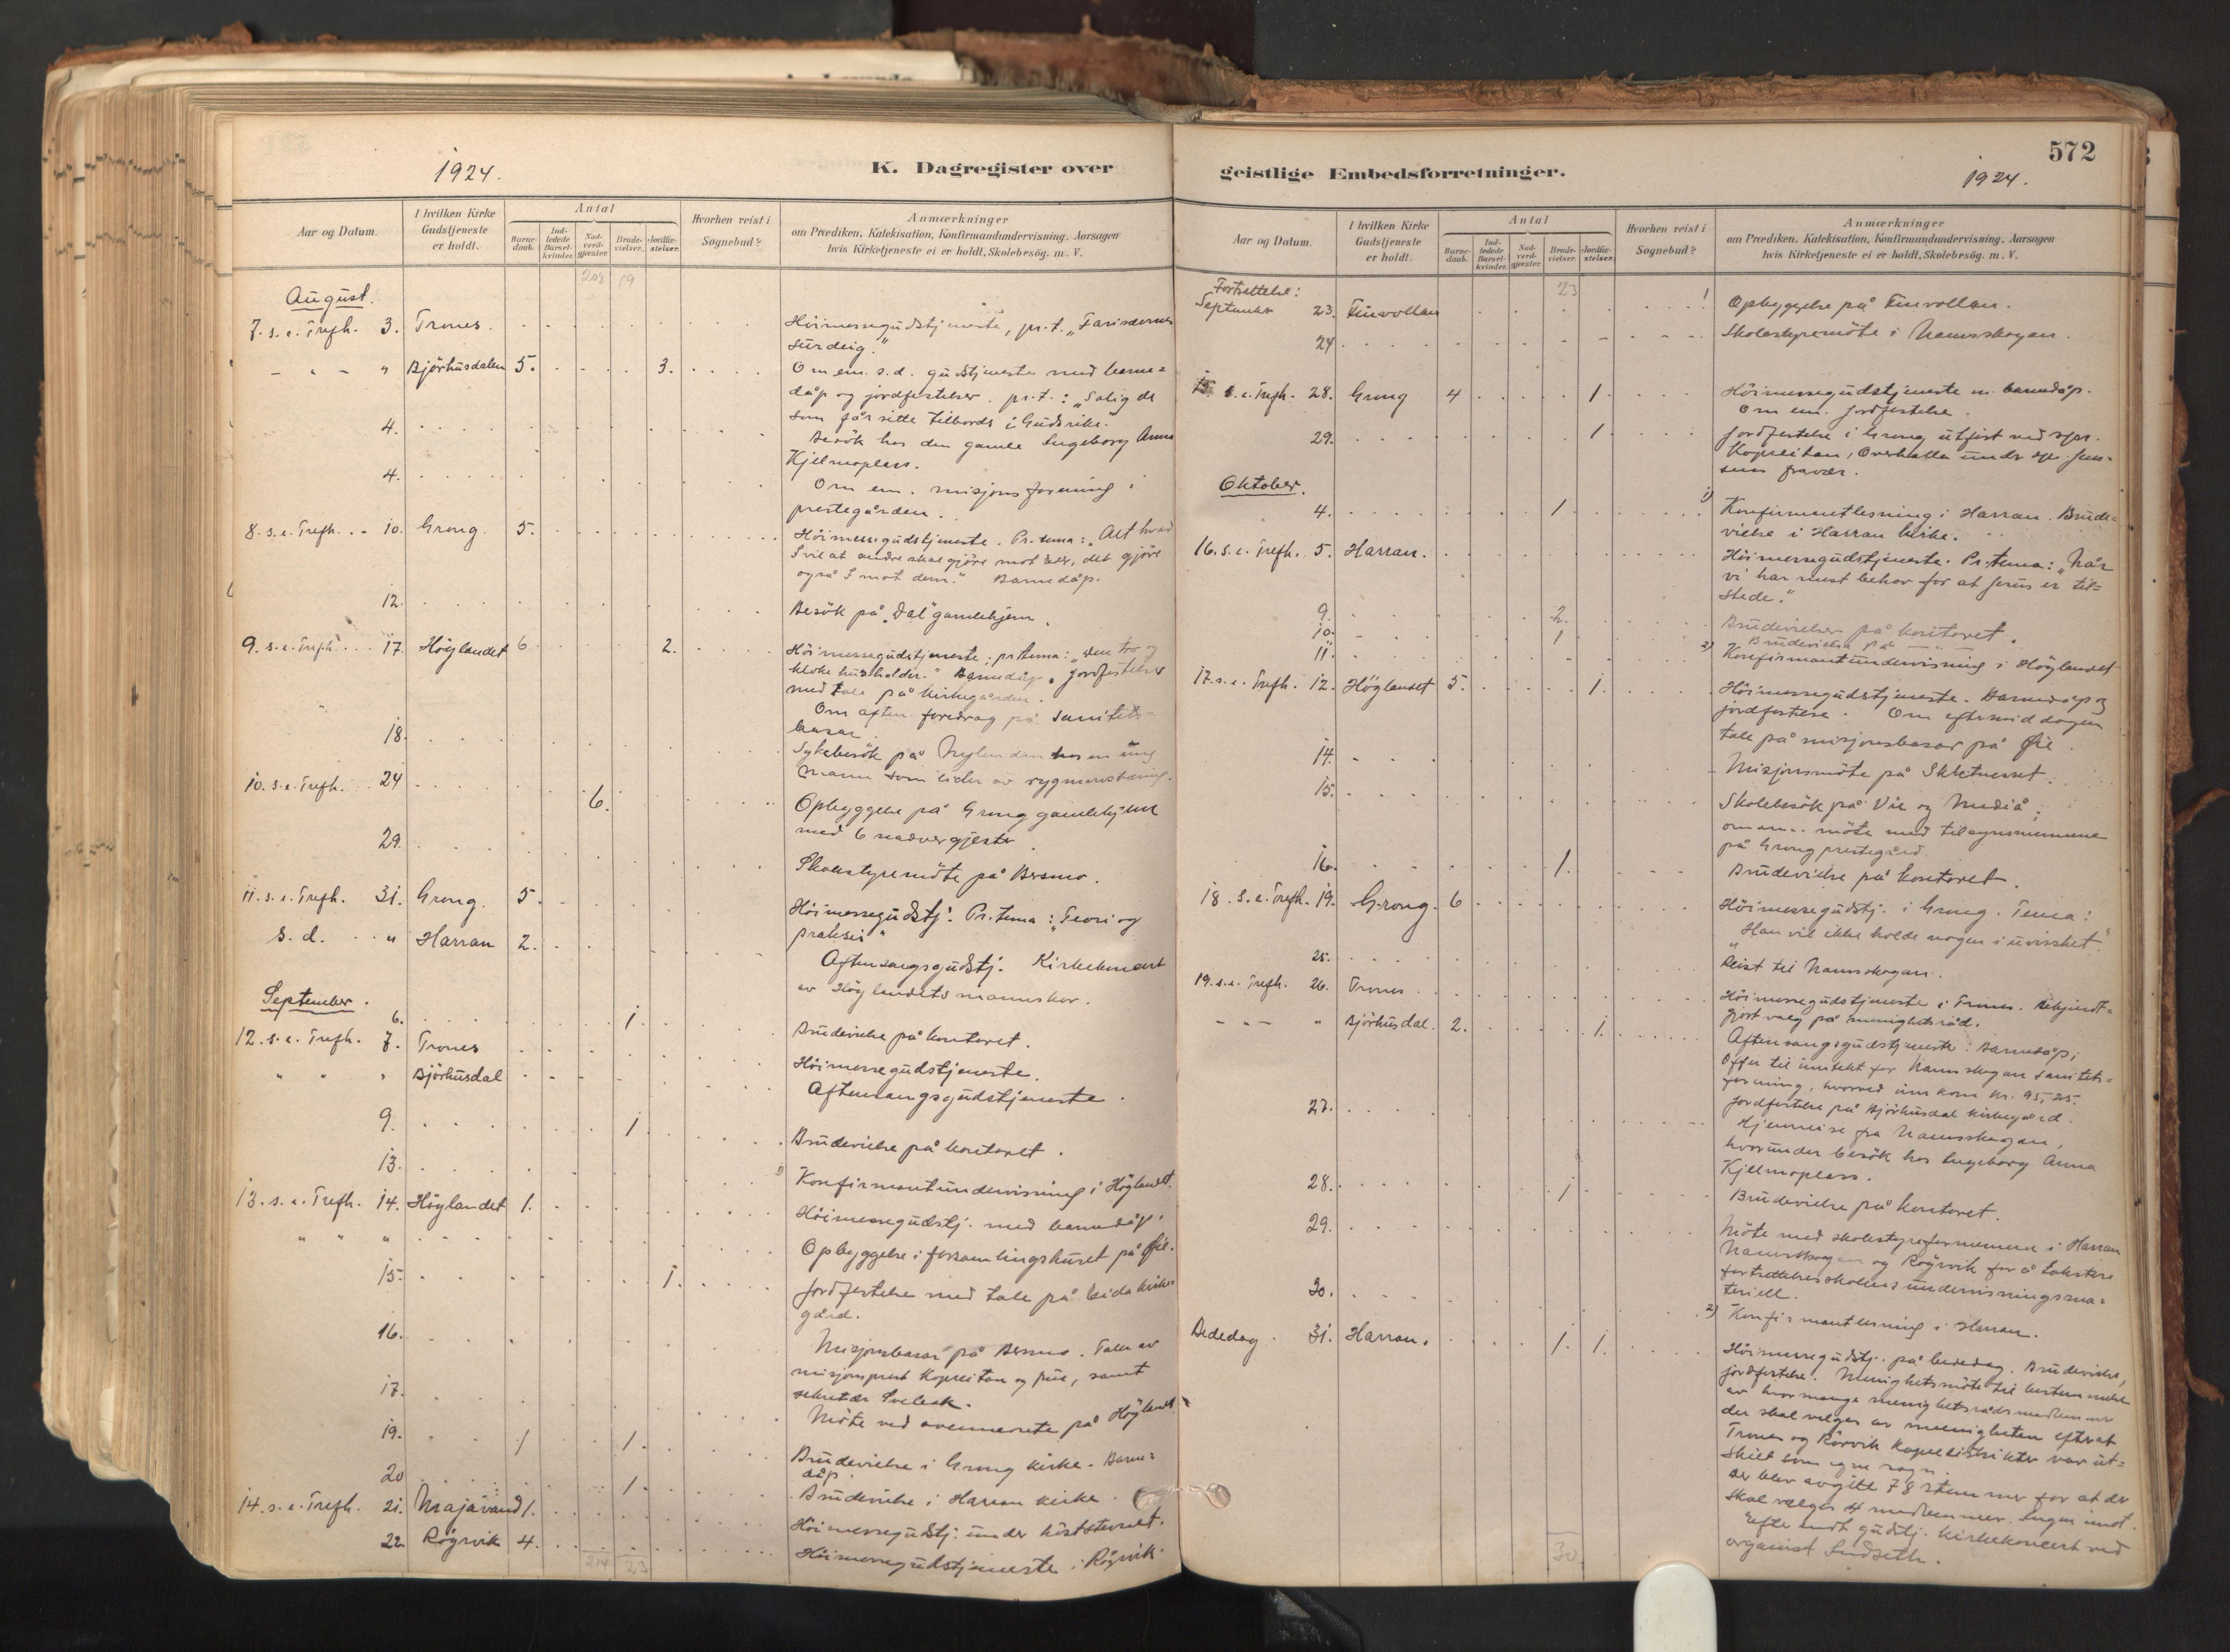 1924.
K. Dagregister over
Aar og Datum.
I hvilken Kirke
Gudstjeneste
er holdt.
Antal
Barne-
daab.
Ind-
ledede
Barsel-
kvinder.
Nad-
verd-
gjæster.
Brude-
vielser.
Jordfæ-
stelser.
Hvorhen reist i
Sognebud?
Anmærkninger
om Prædiken, Katekisation, Konfirmandundervisning, Aarsagen
hvis Kirketjeneste ei er holdt, Skolebesøg. m. V.
208 19
August.
7. s. e. Trefh. 3. Trones. Höimessegudstjeneste, pr. t. „Farisæernes
surdeig."
- " - " Björhusdalen 5. 3. Om em. s.d. gudstjeneste med barne=
dåp og jordfestelser. pr. t.: „Salig de
som får sitte tilbords i Guds rike."
4. Besök hos den gamle Ingeborg Anna
Kjelmoplass.
4. Om em. misjonsforening i
prestegården.
8. s. e. Trefh. 10. Grong. 5. Höimessegudstjeneste. Pr. tema: „Alt hvad
I vil at andre skal gjöre mot eder, det gjöre
også I mot dem." Barnedåp.
12. Besök på „Dal" gamlehjem.
9. s. e. Trefh. 17. Höylandet 6 2. Höimessegudstjeneste; pr. tema: „Den tro og
kloke husholder." Barnedåp. Jordfestelser
med tale på kirkegården.
Om aften foredrag på sanitets=
basar.
18. Sykebesök på hos en ung
mann som lider av
10. s. e. Trefh. 24 6. Opbyggelse på Grong gamlehjem
med 6 nadvergjester.
29. Skolestyremöte på Bersmo.
11. s. e. Trefh. 31. Grong. 5. Höimessegudstj. Pr. tema: „Teori og
praksis"
s. d. " Harran 2. Aftensangsgudstj. Kirkekonsert
av Höylandets mannskor.
September.
6. 1. Brudevielse på kontoret.
12. s. e. Trefh. 7. Trones Höimessegudstjeneste.
" " " Björhusdal Aftensangsgudstjeneste.
9. 1. Brudevielse på kontoret.
13. 1) Konfirmantundervisning i Höylandet.
13. s. e. Trefh. 14. Höylandet 1. Höimessegudstj. med barnedåp.
" " " Opbyggelse i forsamlingshuset på Öie.
15. 1. Jordfestelse med tale på Leida kirke=
gård.
16. Misjonsbasar på Bersmo. Taler av
misjonsprest Kopreitan og frue, samt
sekretær
17. Möte ved på Höylandet.
19. 1 1. Brudevielse i Grong kirke. Barne=
dåp.
20 1. Brudevielse i Harran kirke.
14. s. e. Trefh. 21. Majavand 1. Höimessegudstj. under höststevnet.
22. Röyrvik 4. Höimessegudstjeneste i Röyrvik.
214 23
572
geistlige Embedsforretninger.
1924.
Aar og Datum.
I hvilken Kirke
Gudstjeneste
er holdt.
Antal
Barne-
daab.
Ind-
ledede
Barsel-
kvinder.
Nad-
verd-
gjæster
Brude-
vielser.
Jordfæ-
stelser.
Hvorhen reist i
Sognebud?
Anmærkninger
om Prædiken, Katekisation, Konfirmandundervisning, Aarsagen
hvis Kirketjeneste ei er holdt, Skolebesøg. m. V.
23
Fortsettelse:
September 23. Finvollan Opbyggelse på Finvollan.
24 Skolestyremöte i Namsskogan.
15. s. e. Trefh. 28. Grong 4 1. Höimessegudstjeneste m. barnedåp.
Om em. jordfestelse.
29. 1. Jordfestelse i Grong utfört ved
Kopreitan, Overhalla under
fravær.
Oktober.
4. 1. 1) Konfirmantlesning i Harran. Brude=
vielse i Harran kirke.
16. s. e. Trefh. 5. Harran. Höimessegudstjeneste. Pr. tema: „Når
vi har mest behov for at Jesus er til=
stede."
9. 2. Brudevielser på kontoret.
10. 1 Brudevielse på — " —
11. 2) Konfirmantundervisning i Höylandet
17. s. e. Trefh. 12. Höylandet 5. 1. Höimessegudstjeneste. Barnedåp og
jordfestelse. Om eftermiddagen
tale på misjonsbasar på Öie.
14. Misjonsmöte på
15. Skolebesök på Vie og Mediå;
om em. möte med tilsynsmennene
på Grong prestegård.
16. 1. Brudevielse på kontoret.
18. s. e. Trefh. 19. Grong. 6 Höimessegudstj. i Grong. Tema:
„Han vil ikke holde nogen i uvisshet."
25. Reist til Namsskogan.
19. s. e. Trefh. 26. Trones Höimessegudstjeneste i Trones. Bekjendt=
gjort valg på menighetsråd.
- " - " Björhusdal. 2. 1. Aftensangsgudstjeneste. Barnedåp;
Offer til inntekt for Namsskogan sanitets=
forening, hvorved inn kom kr. 95,25.
Jordfestelse på Björhusdal kirkegård.
27. Hjemreise fra Namsskogan,
hvorunder besök hos Ingeborg Anna
Kjelmoplass.
28. 1 Brudevielse på kontoret.
29. Möte med skolestyreformennene i Harran
Namsskogan og Röyrvik for å takstere
fortsettelsesskolens undervisningsma=
teriell.
30. 2) Konfirmantlesning i Harran.
Bededag. 31. Harran. 1. 1. Höimessegudstj. på bededag. Brudevielse,
jordfestelse. Menighetsmöte til bestemmelse
av hvor mange menighetsrådsmedlemmer
der skal velges av menigheten efterat
Trones og Rörvik kapelldistrikter var ut=
skilt som egne sogn.
Der blev avgitt 78 stemmer for at der
skal velges 4 medlemmer. Ingen imot.
Efter endt gudstj. kirkekoncert ved
organist Sudseth.
30.